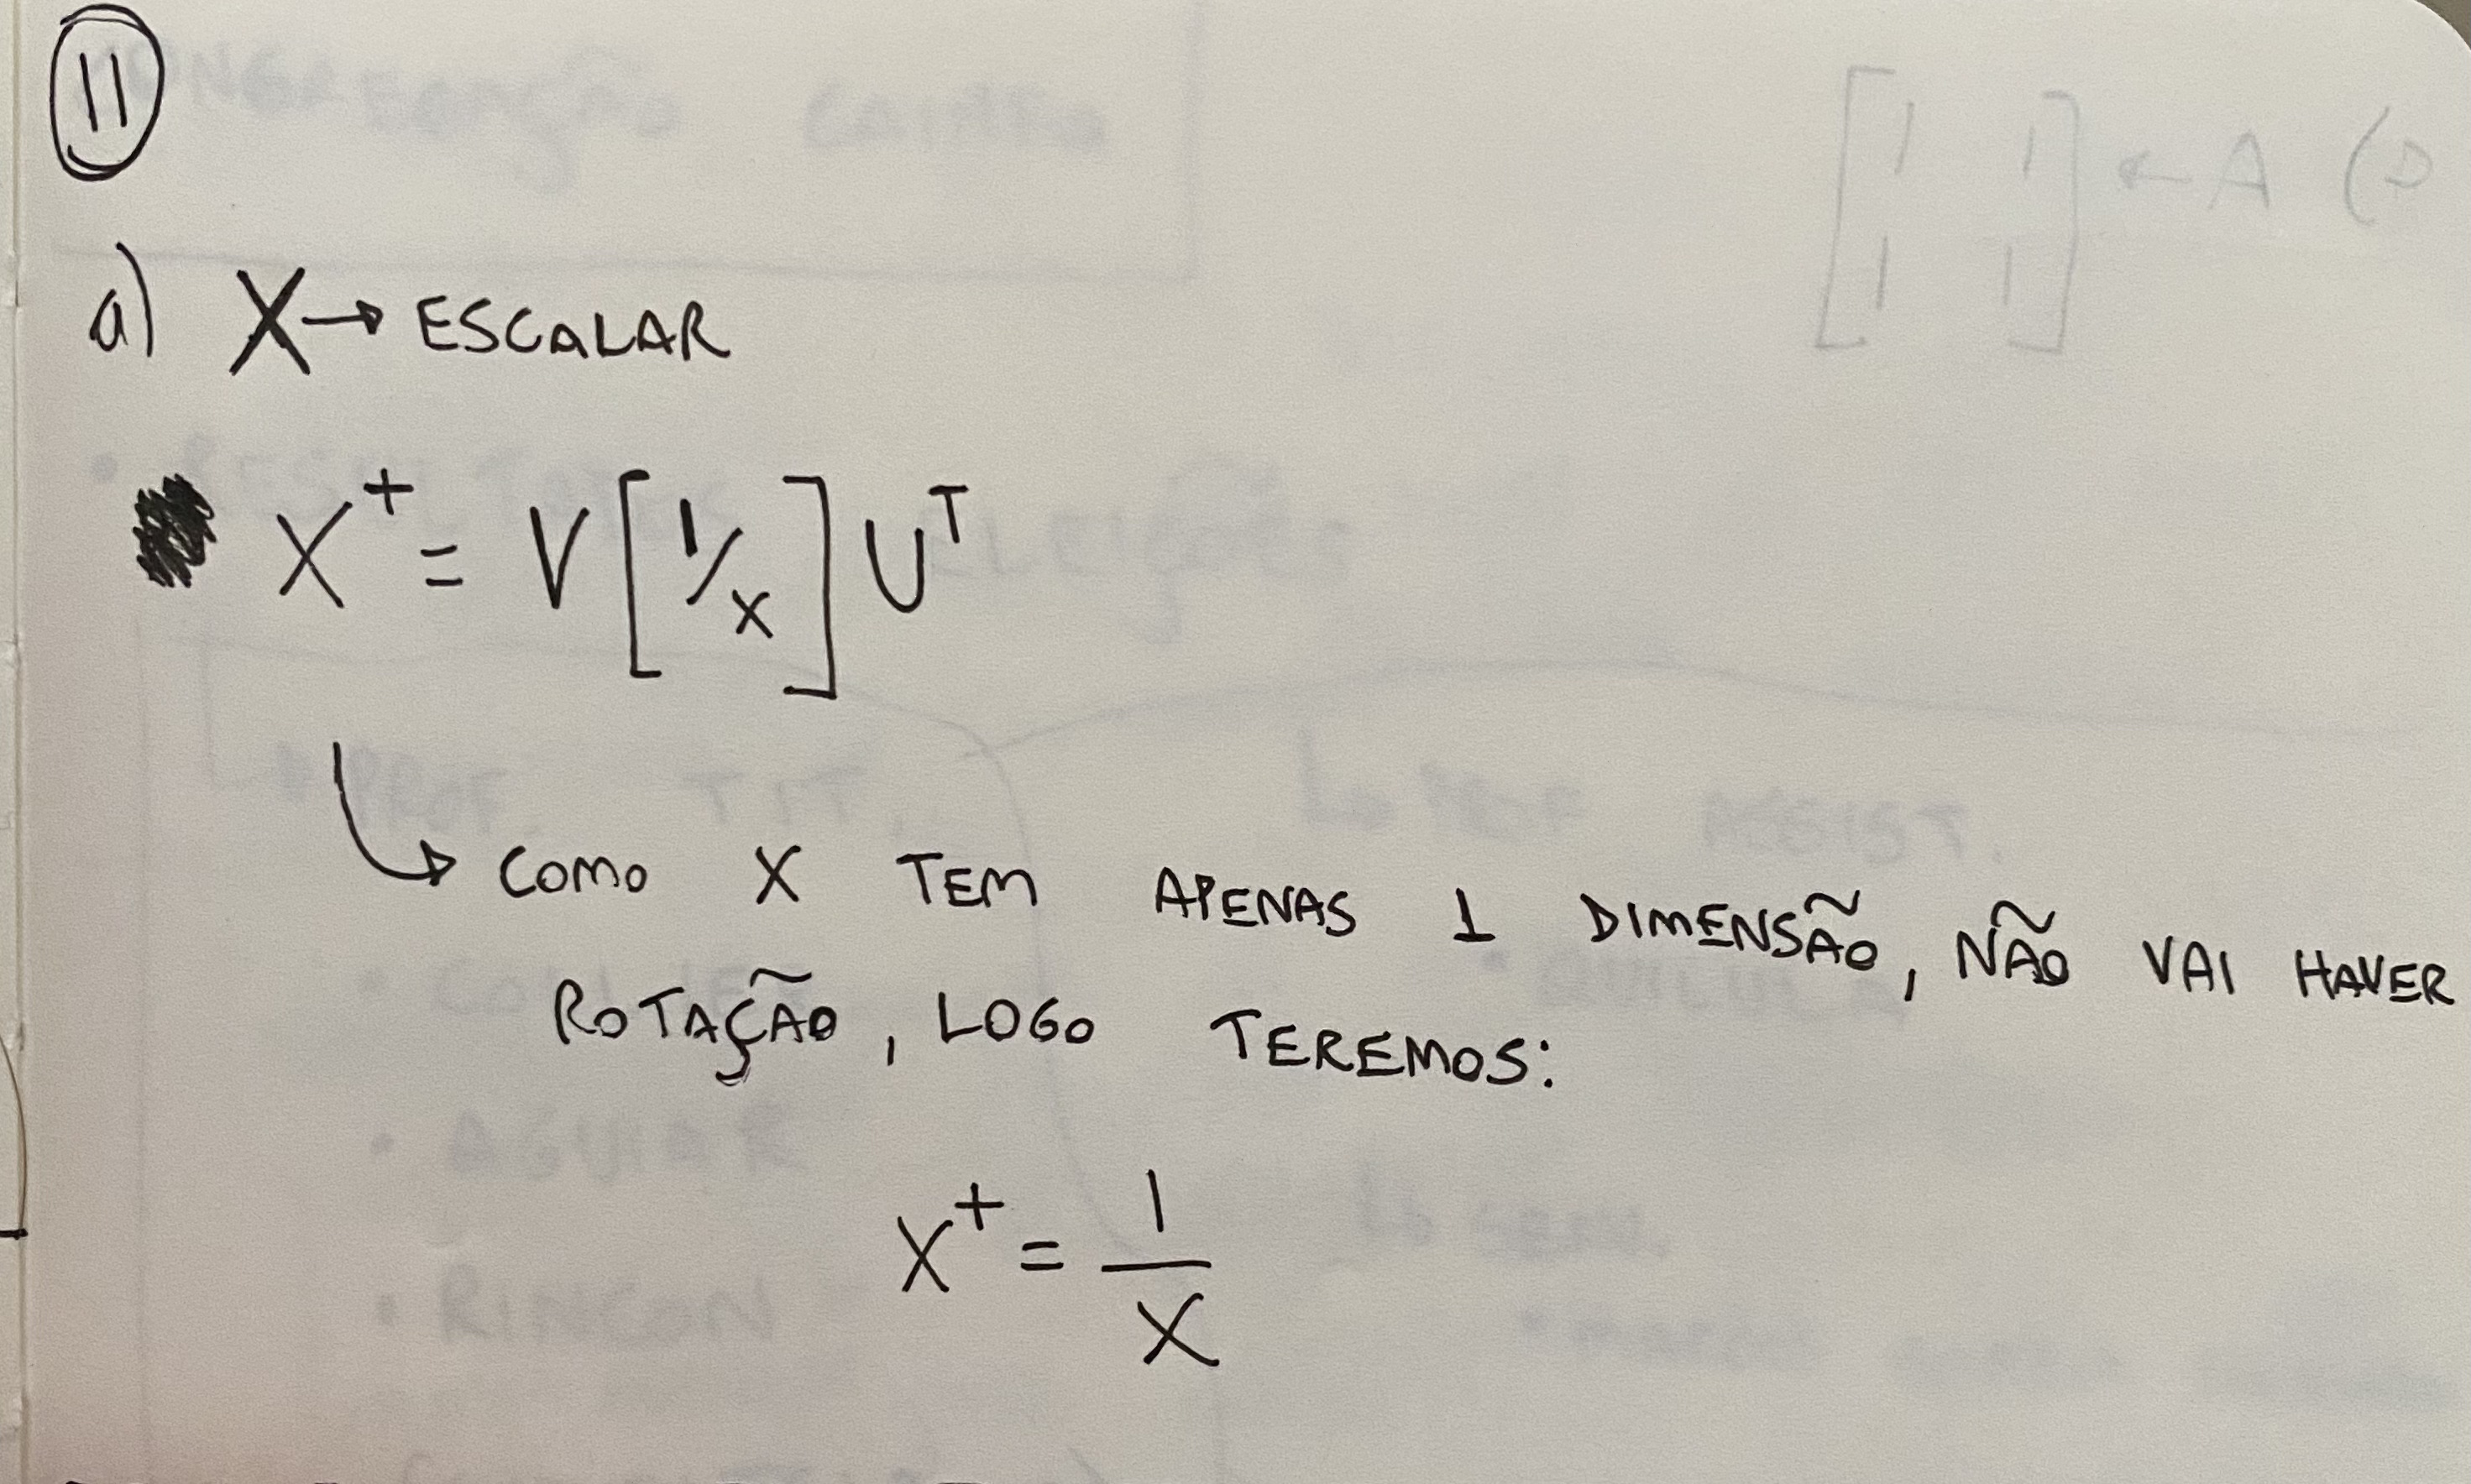 11
a) X → ESCALAR
X⁺ = V [1/x] Uᵀ
↳ COMO X TEM APENAS 1 DIMENSÃO, NÃO VAI HAVER
ROTAÇÃO, LOGO TEREMOS:
X⁺ = 1/X